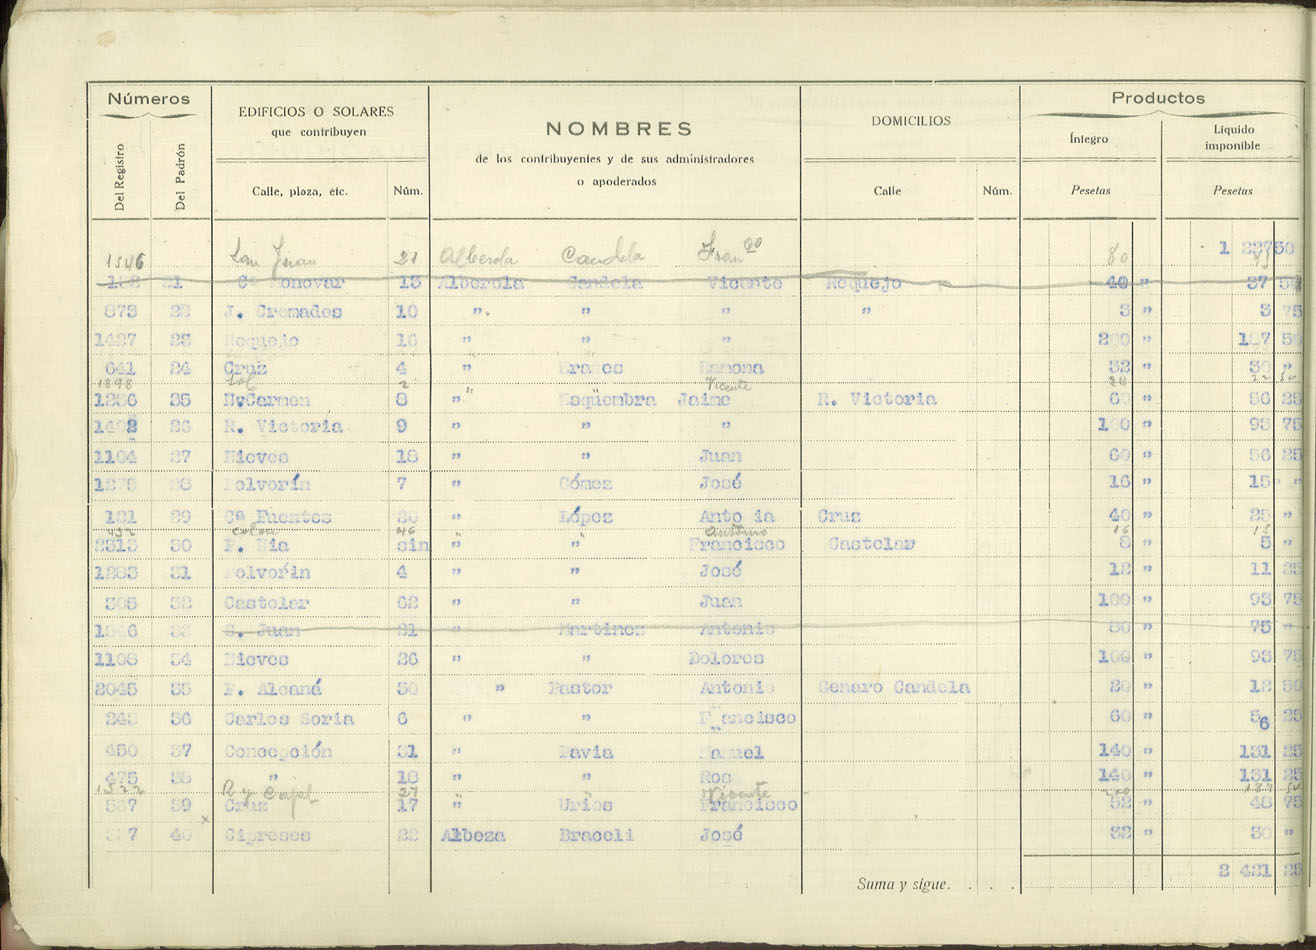 Números
EDIFICIOS O SOLARES
que contribuyen
NOMBRES
de los contribuyentes y de sus administradores
o apoderados
DOMICILIOS
Productos
Íntegro
Líquido
imponible
Del Registro
Del Padrón
Calle, plaza, etc.
Núm.
Calle
Núm.
Pesetas
Pesetas
1 50
1546 San Juan 21 Alberola Candela Franco 80
21 Cª Monovar 13 Alberola Candela Vicente Requejo 40 " 37 50
873 22 J. Cremades 10 " " " " 3 " 3 75
1427 23 Requejo 16 " " " 200 " 187 50
641 24 Cruz 4 " Ramona 32 " 30 "
1898 Sol 2 " Vicente 24 22 50
25 N.Carmen 8 " Esquembra Jaime R. Victoria 60 " 56 25
26 R. Victoria 9 " " " 100 " 93 75
1104 27 Nieves 18 " " Juan 60 " 56 25
28 Polvorín 7 " Gómez José 16 " 15 "
181 29 Cª Fuentes López Antonia Cruz 40 "
Colon 46 " " Antonio 16 15
30 P. Dia sin " " Francisco Castelar 8 " 5 "
1283 31 Polvorin 4 " " José 12 " 11 25
305 32 Castelar 62 " " Juan 100 " 93 75
1546 33 S. Juan 21 " Martinez Antonio 80 " 75 "
1108 34 Nieves 26 " " Dolores 100 " 93 75
2045 35 P. Alcaná " Pastor Antonio Genaro Candela 20 " 12 50
36 Carlos Soria 6 " " Francisco 60 " 56 25
450 37 Concepción 31 " Pavia Manuel 140 " 131 25
475 38 " 18 " " Ros 140 " 131 25
1322 R y Cajal 27 " " Vicente 200 187 50
39 Cruz 17 " Urios Francisco 52 " 48 75
x
40 Cipreses 22 Albeza Braceli José 32 " 30 "
Suma y sigue. . . . 2 421 25